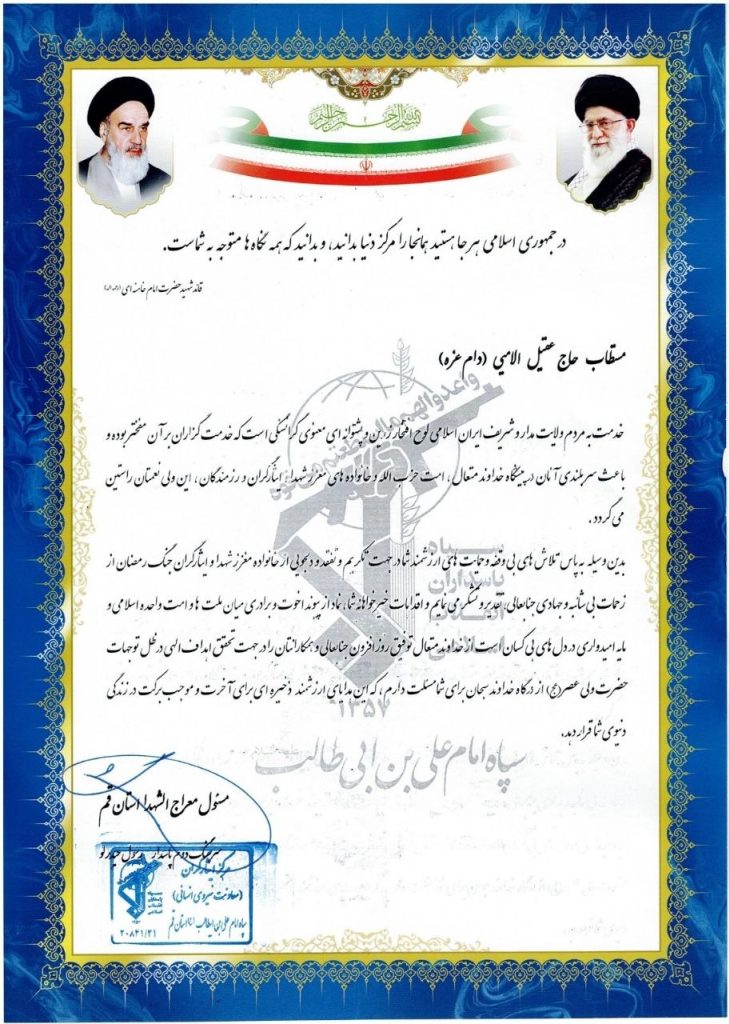 بسم الله الرحمن الرحیم
در جمهوری اسلامی هر جا هستید همانجا را مرکز دنیا بدانید، و بدانید که همه نگاه ها متوجه به شماست.
قائد شهید حضرت امام خامنه ای (رحمه الله)
مستطاب حاج عقیل الامیی (دام عزه)
خدمت به مردم ولایت مدار و شریف ایران اسلامی لوح افتخار زرین و پشتوانه ای معنوی گرانسنگی است که خدمت گزاران بر آن مفتخر بوده و
باعث سربلندی آنان در پیشگاه خداوند متعال، امت حزب الله و خانواده های معزز شهدا ایثارگران و رزمندگان، این ولی نعمتان راستین
می گردد.
بدین وسیله به پاس تلاش های بی وقفه و حمایت های ارزشمند شما در جهت تکریم و تفقد و دلجویی از خانواده معزز شهدا و ایثارگران جنگ رمضان از
زحمات بی شائبه و جهادی جنابعالی، تقدیر و تشکر می نمایم و اقدامات خیرخواهانه شما، نماد از پیوند اخوت و برادری میان ملت ها و امت واحده اسلامی و
مایه امیدواری در دل های بی کسان است از خداوند متعال توفیق روزافزون جنابعالی و همکارانتان را در جهت تحقق اهداف الهی در ظل توجهات
حضرت ولی عصر (عج) از درگاه خداوند سبحان برای شما مسئلت دارم، که این هدایای ارزشمند ذخیره ای برای آخرت و موجب برکت در زندگی
دنیوی شما قرار دهد.
واعدوا لهم ما استطعتم من قوة
سپاه
پاسداران
انقلاب
اسلامی
۱۳۵۷
سپاه امام علی بن ابی طالب
مسئول معراج الشهدا استان قم
سرهنگ دوم پاسدار رسول حیدرلو
مرکز ایثارگران
(معاونت نیروی انسانی)
سپاه امام علی بن ابیطالب (ع) استان قم
۲۰۸۴۱/۲۱